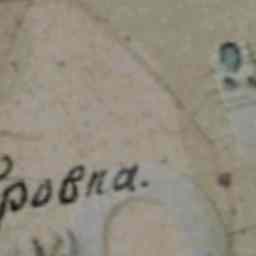 ровка.